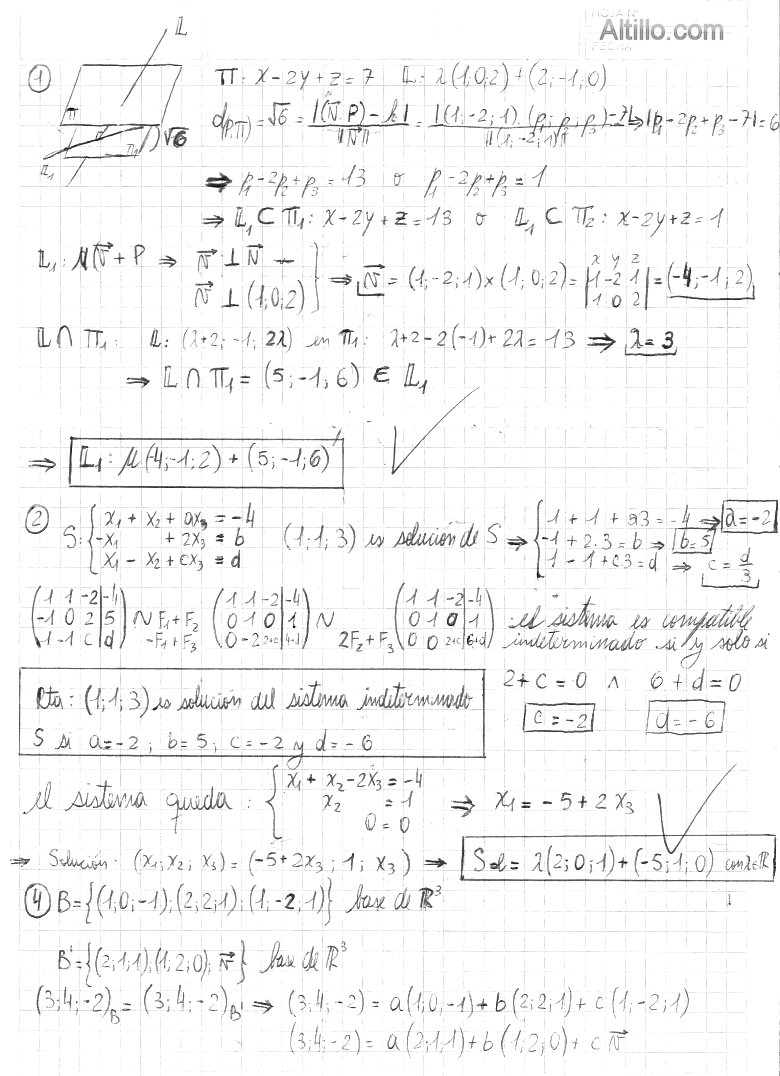 HOJA Nº
Altillo.com
FECHA
𝕃
① Π: x-2y+z=7 𝕃: λ(1;0;2)+(2;-1;0)
Π
d
Π₁
√6
𝕃₁
d(P;Π) = √6 = |(N⃗.P)-k| / ‖N⃗‖ = |(1;-2;1).(p₁;p₂;p₃)-7| / ‖(1;-2;1)‖ ⇒ |p₁-2p₂+p₃-7|=6
⇒ p₁-2p₂+p₃=13 o p₁-2p₂+p₃=1
⇒ 𝕃₁ ⊂ Π₁: x-2y+z=13 o 𝕃₁ ⊂ Π₂: x-2y+z=1
𝕃₁: μN⃗+P ⇒ N⃗ ⊥ N⃗
N⃗ ⊥ (1;0;2) } ⇒ N⃗ = (1;-2;1)×(1;0;2) = |x y z; 1 -2 1; 1 0 2| = (-4;-1;2)
𝕃∩Π₁: 𝕃: (λ+2;-1;2λ) en Π₁: λ+2-2(-1)+2λ=13 ⇒ λ=3
⇒ 𝕃∩Π₁ = (5;-1;6) ∈ 𝕃₁
⇒ 𝕃₁: μ(-4;-1;2)+(5;-1;6)
② S: { x₁ + x₂ + ax₃ = -4
-x₁ + 2x₃ = b
x₁ - x₂ + cx₃ = d
(1;1;3) es solución de S ⇒ { 1+1+a3=-4 ⇒ a=-2
-1+2.3=b ⇒ b=5
1-1+c3=d ⇒ c=d/3
(1 1 -2|-4; -1 0 2|5; 1 -1 c|d) ~ F₁+F₂ -F₁+F₃ (1 1 -2|-4; 0 1 0|1; 0 -2 2+c|4+d) ~ 2F₂+F₃ (1 1 -2|-4; 0 1 0|1; 0 0 2+c|6+d) : el sistema es compatible
indeterminado si y solo si
2+c=0 ∧ 6+d=0
c=-2 d=-6
Rta: (1;1;3) es solución del sistema indeterminado
S si a=-2; b=5; c=-2 y d=-6
el sistema queda: { x₁+x₂-2x₃=-4
x₂ = 1
0=0
⇒ x₁=-5+2x₃
⇒ Solución: (x₁;x₂;x₃)=(-5+2x₃;1;x₃) ⇒ Sol= λ(2;0;1)+(-5;1;0) con λ∈ℝ
④ B={(1;0;-1);(2;2;1);(1;-2;1)} base de ℝ³
B'={(2;1;1);(1;2;0);N⃗} base de ℝ³
(3;4;-2)B = (3;4;-2)B' ⇒ (3;4;-2) = a(1;0;-1)+b(2;2;1)+c(1;-2;1)
(3;4;-2) = a(2;1;1)+b(1;2;0)+c N⃗